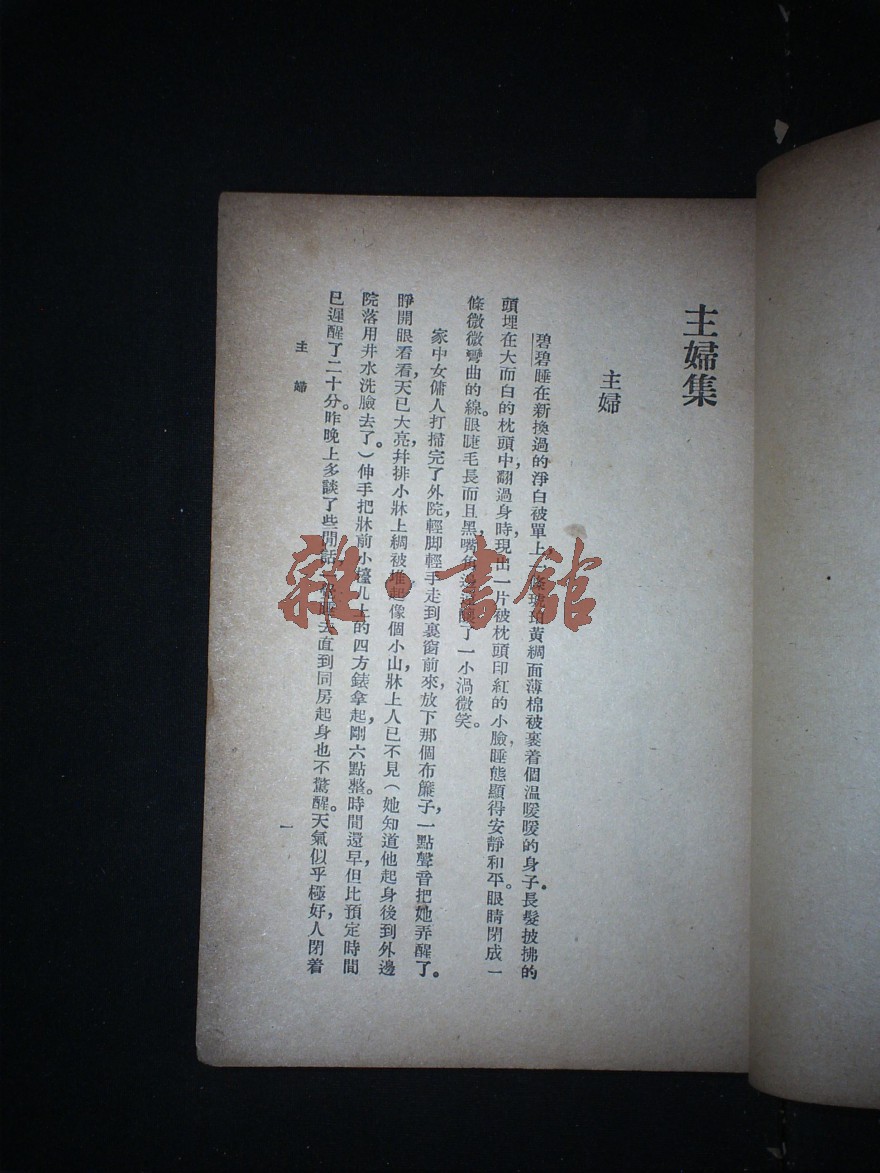 主婦集
主婦
碧碧睡在新換過的淨白被單上,一條琥珀黃綢面薄棉被裹着個溫暖暖的身子。長髮披拂的
頭埋在大而白的枕頭中,翻過身時,現出一片被枕頭印紅的小臉,睡態顯得安靜和平。眼睛閉成一
條微微彎曲的線。眼睫毛長而且黑,嘴角 了一小渦微笑。
家中女傭人打掃完了外院,輕脚輕手走到裏窗前來,放下那個布簾子,一點聲音把她弄醒了。
睜開眼看看,天已大亮,幷排小牀上綢被堆起像個小山,牀上人已不見(她知道他起身後到外邊
院落用井水洗臉去了。)伸手把牀前小檯儿上的四方錶拿起,剛六點整。時間還早,但比預定時間
已遲醒了二十分。昨晚上多談了些閒話, 去直到同房起身也不驚醒。天氣似乎極好,人閉着
主婦
一
雜·書館